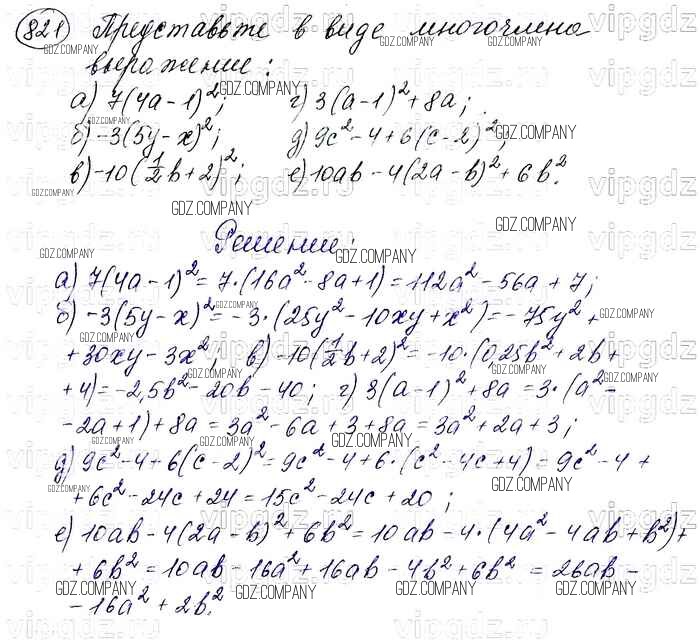 821 Представьте в виде многочлена
выражение:
а) 7(4a-1)²; г) 3(a-1)²+8a;
б) -3(5y-x)²; д) 9c²-4+6(c-2)²;
в) -10(1/2b+2)²; е) 10ab-4(2a-b)²+6b².
Решение:
а) 7(4a-1)²=7·(16a²-8a+1)=112a²-56a+7;
б) -3(5y-x)²=-3·(25y²-10xy+x²)=-75y²+
+30xy-3x²; в) -10(1/2b+2)²=-10·(0,25b²+2b+
+4)=-2,5b²-20b-40; г) 3(a-1)²+8a=3·(a²-
-2a+1)+8a=3a²-6a+3+8a=3a²+2a+3;
д) 9c²-4+6(c-2)²=9c²-4+6·(c²-4c+4)=9c²-4+
+6c²-24c+24=15c²-24c+20;
е) 10ab-4(2a-b)²+6b²=10ab-4·(4a²-4ab+b²)+
+6b²=10ab-16a²+16ab-4b²+6b²=26ab-
-16a²+2b².